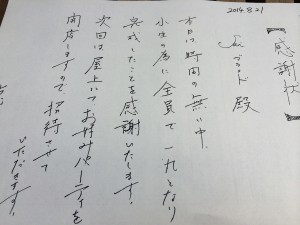 2014.8.21
【感謝状】
殿
本日は時間の無い中、
小生の為に全員で一丸となり
完成したことを感謝いたします。
次回は屋上にてお好みパーティを
開店しますので招待させて
いただきます!